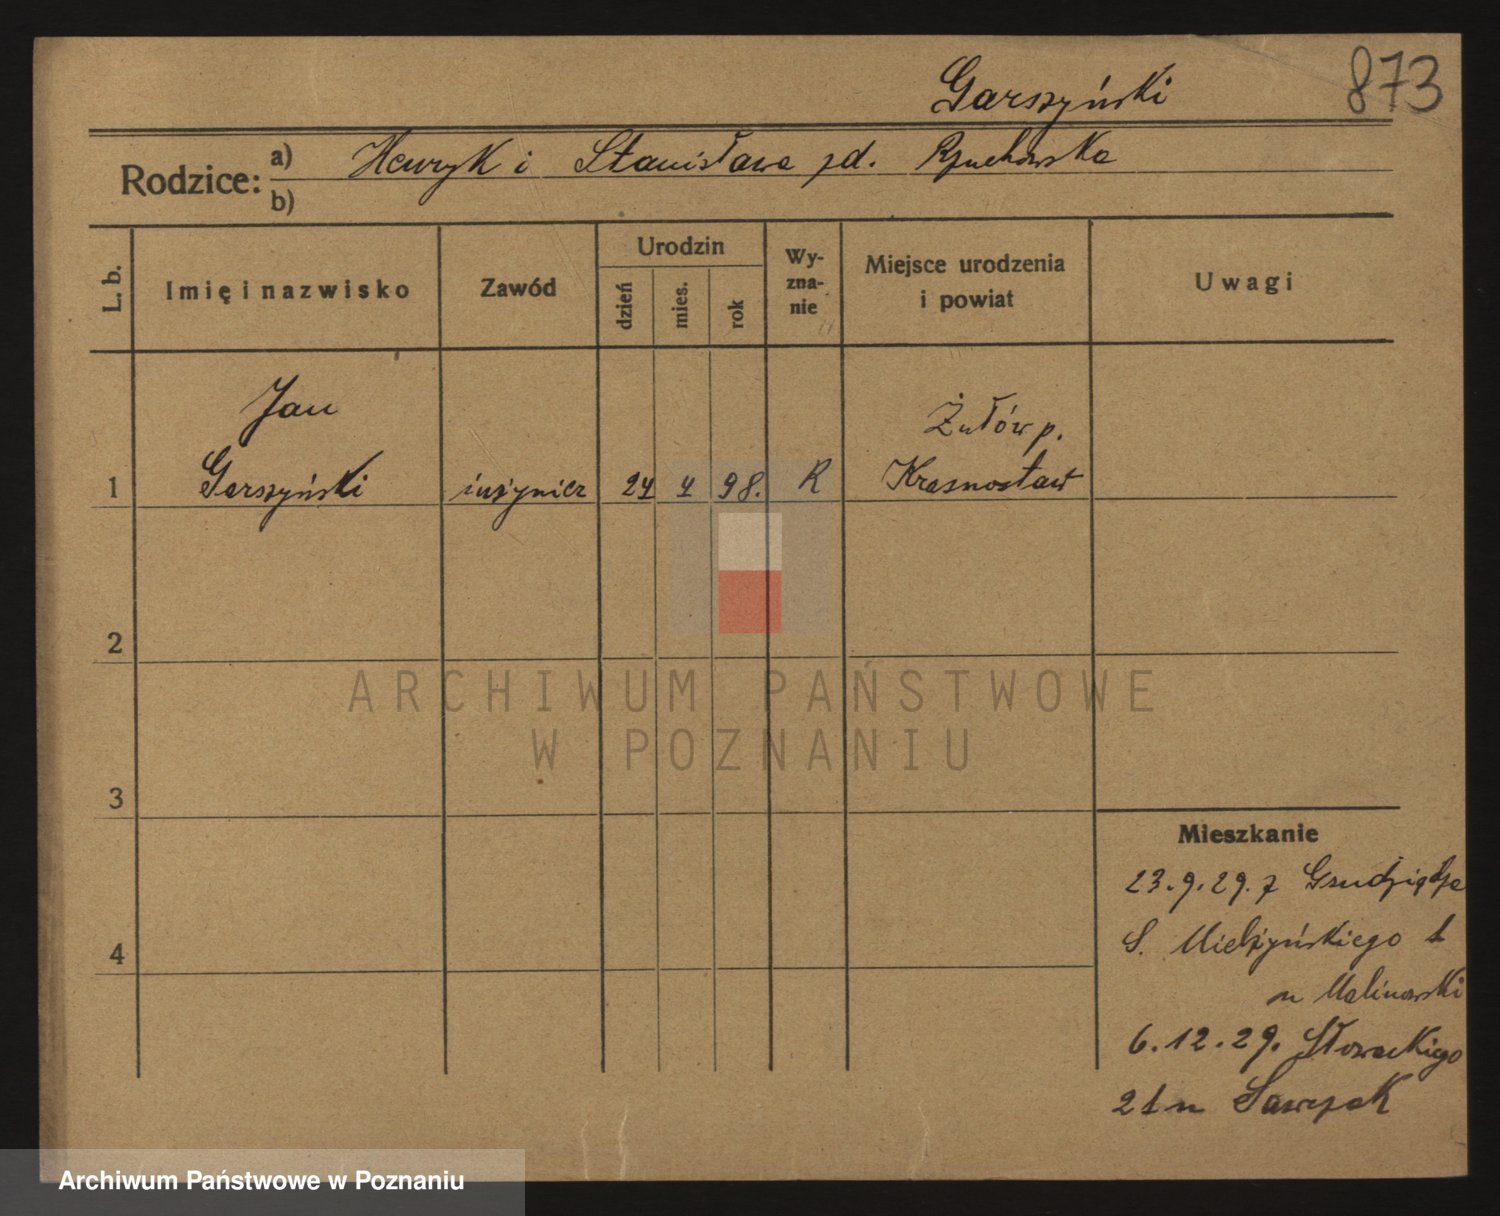 Garszyński
873
Rodzice: a) Henryk i Stanisława zd. Rzuchowska
b)
L. b.
Imię i nazwisko
Zawód
Urodzin
dzień
mies.
rok
Wy-
zna-
nie
Miejsce urodzenia
i powiat
Uwagi
Jan
Żułów p.
1 Garszyński inżynier 24 4 98. R Krasnostaw
2
ARCHIWUM PAŃSTWOWE
W POZNANIU
3
Mieszkanie
23.9.29. z Grudziądza
S. Mielżyńskiego 1
m Malinowski
4
6.12.29. Słowackiego
21 m
Archiwum Państwowe w Poznaniu